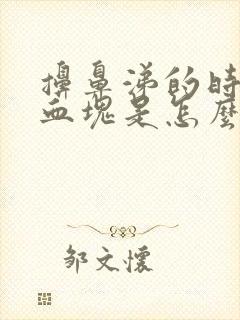 擤鼻涕的時
血塊是怎麼
邹文懷